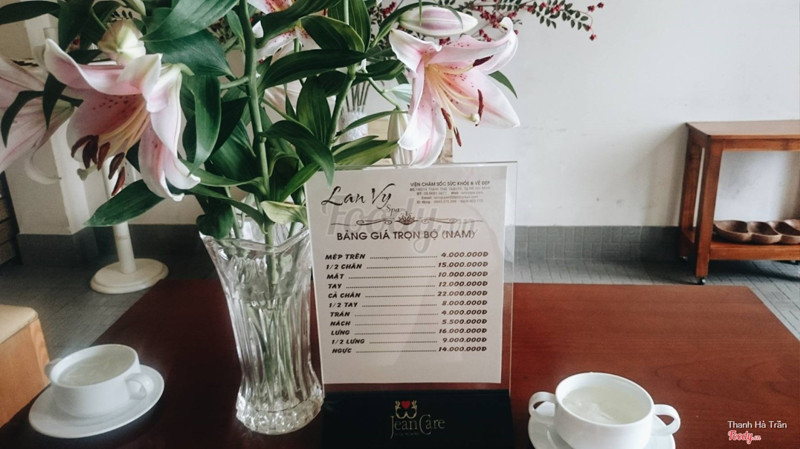 Lan Vy
Spa
VIỆN CHĂM SÓC SỨC KHỎE & VẺ ĐẸP
Foody.vn
BẢNG GIÁ TRỌN BỘ (NAM)
MÉP TRÊN 4.000.000Đ
1/2 CHÂN 15.000.000Đ
MẶT 10.000.000Đ
TAY 12.000.000Đ
CẢ CHÂN 22.000.000Đ
1/2 TAY 8.000.000Đ
TRÁN 4.000.000Đ
NÁCH 5.500.000Đ
LƯNG 16.000.000Đ
1/2 LƯNG 9.000.000Đ
NGỰC 14.000.000Đ
JeanCare
Thanh Hà Trần
Foody.vn